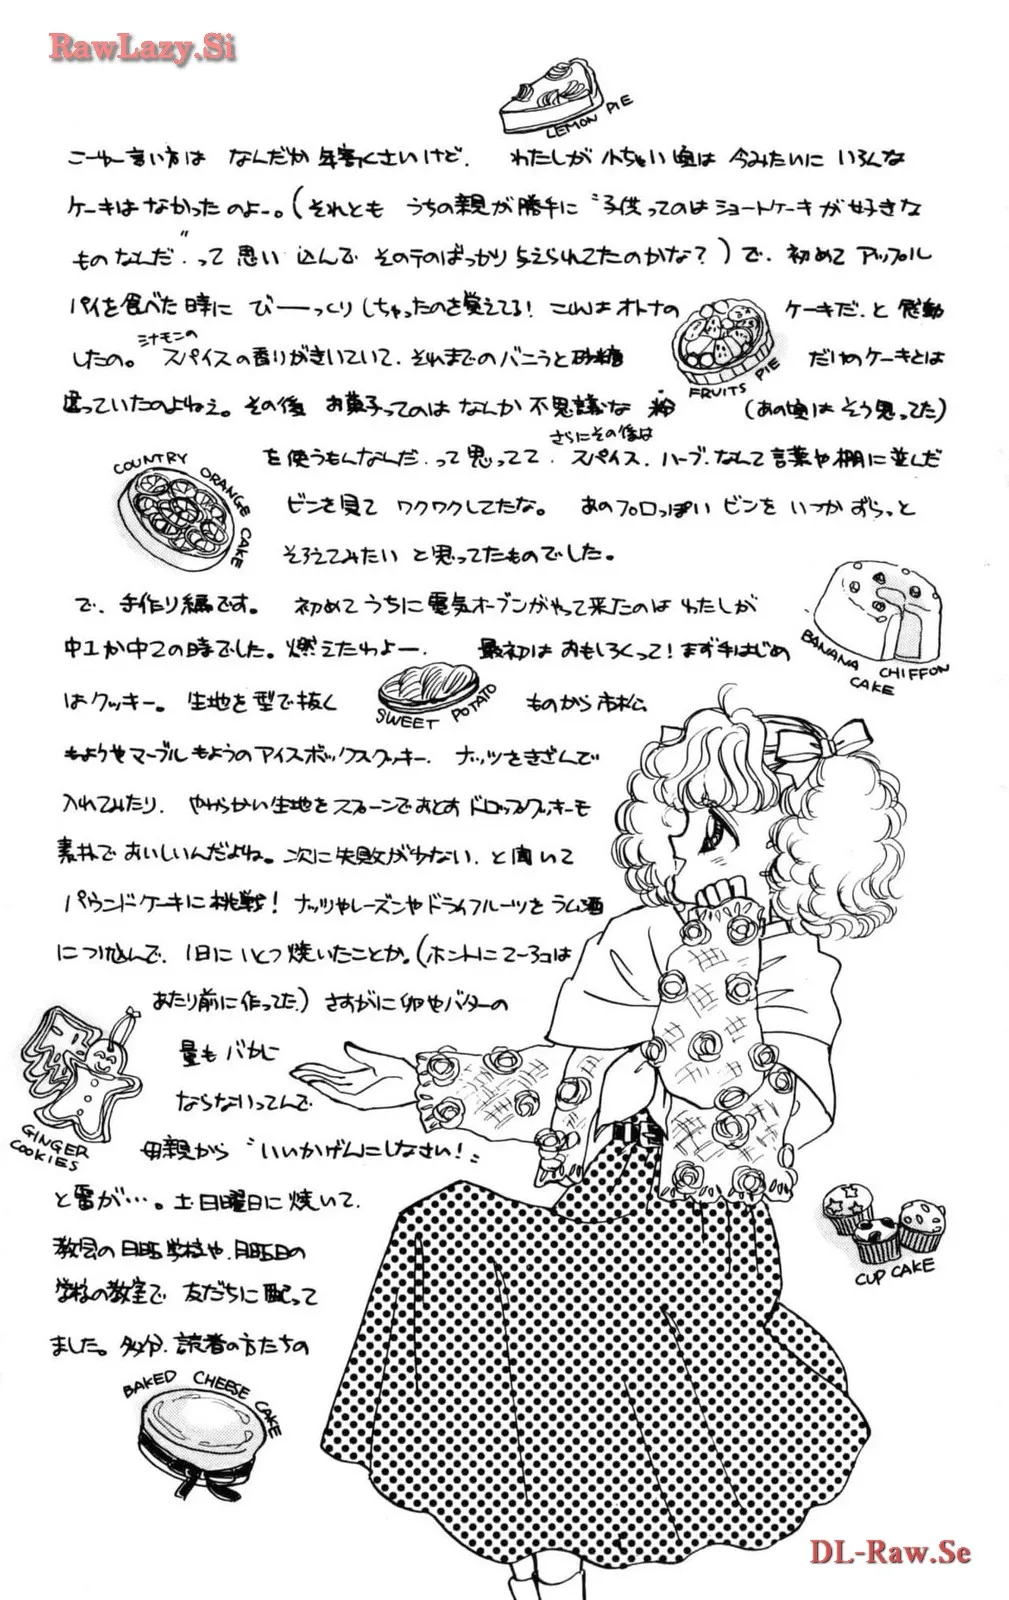 RawLazy.Si
LEMON PIE
こーゆー言い方は なんだか年寄くさいけど、 わたしが小ちゃい頃は 今みたいに いろんな
ケーキは なかったのよー。(それとも うちの親が勝手に “子供ってのはショートケーキが好きな
ものなんだ”って思い込んで そのテのばっかり与えられてたのかな?)で、初めて アップル
パイを食べた時に びーーっくりしちゃったのを覚えてる! これはオトナの ケーキだ、と感動
したの。 ミナモンの スパイスの香りがきいていて、それまでのバニラと砂糖 だけのケーキとは
FRUITS PIE
違っていたのよねぇ。その後 お菓子ってのは なんか 不思議な 粉 (あの頃は そう思ってた)
COUNTRY ORANGE CAKE
を使うもんなんだ、って思ってて、さらにその後は スパイス、ハーブ、なんて言葉や棚に並んだ
ビンを見て ワクワクしてたな。 あのプロっぽい ビンを いつか ずらっと
そろえてみたい と思ってたものでした。
BANANA CHIFFON CAKE
で、手作り編です。 初めて うちに 電気オーブンがやって来たのは わたしが
中1か中2の時でした。燃えたわよー、 最初は おもしろくって! まず手はじめ
はクッキー。 生地を 型で抜く ものから 市松
SWEET POTATO
もようやマーブルもようのアイスボックスクッキー、 ナッツをきざんで
入れてみたり、 やわらかい生地をスプーンでおとす ドロップクッキーも
素朴で おいしいんだよね。次に 失敗が少ない、と聞いて
パウンドケーキに挑戦! ナッツやレーズンやドライフルーツを ラム酒
につけ込んで、1日に いくつ焼いたことか。(ホントに 2〜3コは
あたり前に作ってた)さすがに 卵やバターの
量も バカに
ならないってんで
GINGER COOKIES
母親から “いいかげんにしなさい!”
と雷が…。土・日曜日に焼いて、
教会の日曜学校や、月曜日の
学校の教室で 友だちに 配って
ました。多分、読者の方たちの
CUP CAKE
BAKED CHEESE CAKE
DL-Raw.Se